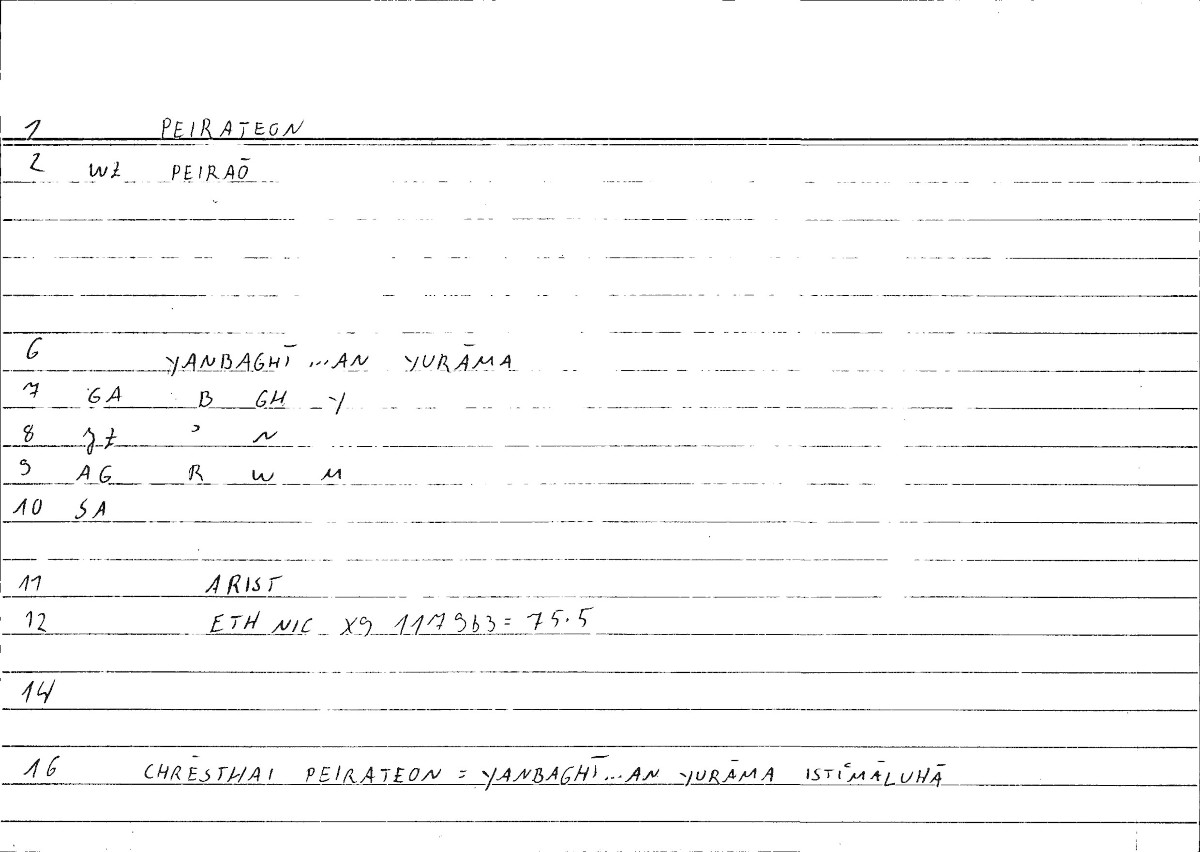 1 PEIRATEON
2 WZ PEIRAŌ
6 YANBAGHĪ ...AN YURĀMA
7 GA B GH Y
8 ʾ N
9 AG R W M
10 SA
11 ARIST
12 ETH NIC X9 1179b3 = 75.5
14
16 CHRĒSTHAI PEIRATEON = YANBAGHĪ...AN YURĀMA ISTIʿMĀLUHĀ